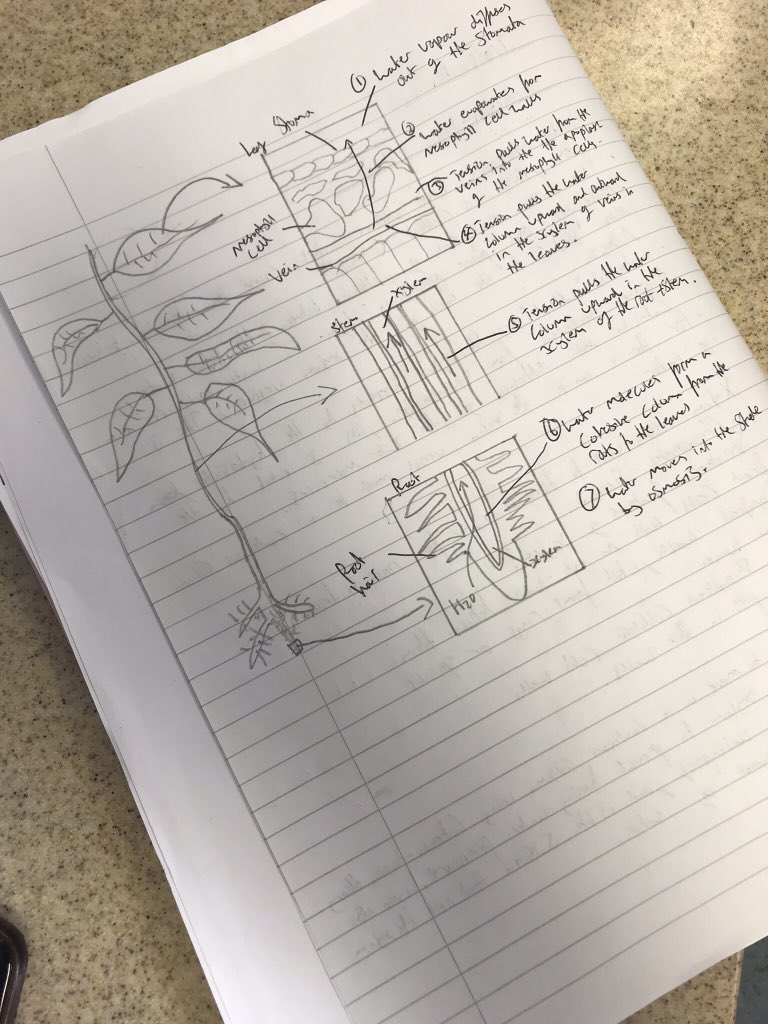 ① Water vapour diffuses
out of the Stomata
Stoma
Leaf
② Water evaporates from
mesophyll cell walls
③ Tension pulls water from the
veins into the the apoplast
of the mesophyll cells.
Mesophyll
cell
④ Tension pulls the water
Column upward and outward
in the xylem of veins in
the leaves.
Vein
Xylem
Stem
⑤ Tension pulls the water
Column upward in the
xylem of the root + stem.
⑥ Water molecules form a
Cohesive Column from the
roots to the leaves
Root
⑦ Water moves into the Stele
by osmosis.
Root
hair
xylem
H2O